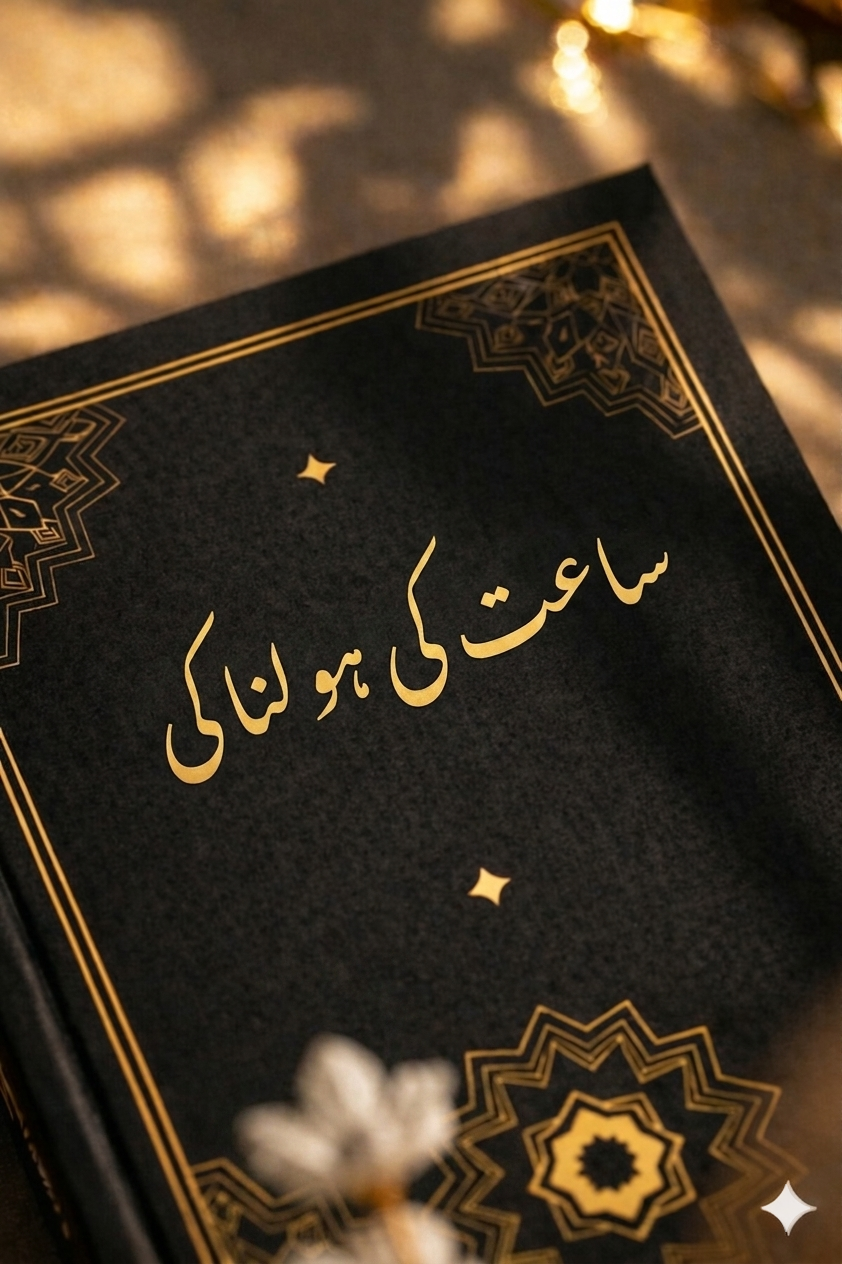 ساعت کی ہولناکی